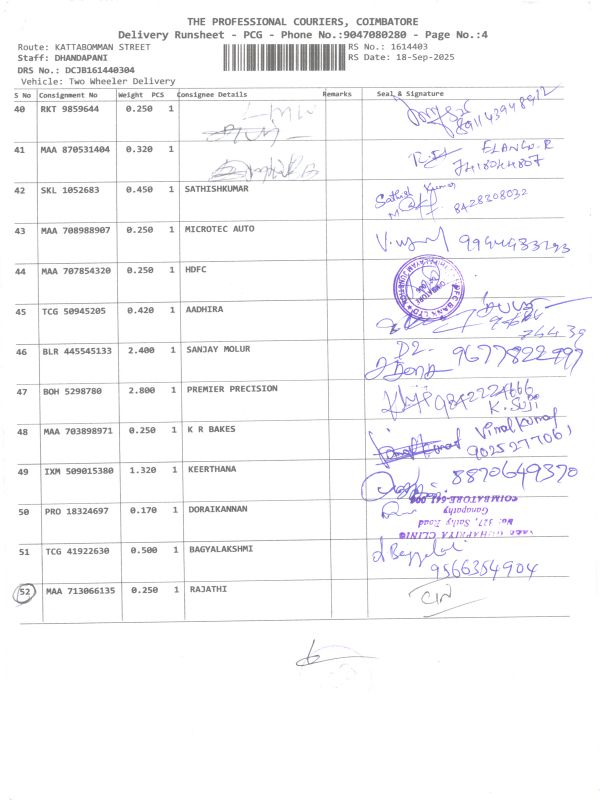 THE PROFESSIONAL COURIERS, COIMBATORE
Delivery Runsheet - PCG - Phone No.:9047080280 - Page No.:4
Route: KATTABOMMAN STREET RS No.: 1614403
Staff: DHANDAPANI RS Date: 18-Sep-2025
DRS No.: DCJB161440304
Vehicle: Two Wheeler Delivery
S No Consignment No Weight PCS Consignee Details Remarks Seal & Signature
40 RKT 9859644 0.250 1
41 MAA 870531404 0.320 1 ELANGO.R
42 SKL 1052683 0.450 1 SATHISHKUMAR Sathish Kumar
8428308032
43 MAA 708988907 0.250 1 MICROTEC AUTO
44 MAA 707854320 0.250 1 HDFC
45 TCG 50945205 0.420 1 AADHIRA
46 BLR 445545133 2.400 1 SANJAY MOLUR D2-
9677822997
47 BOH 5298780 2.800 1 PREMIER PRECISION 9842224666
K. Suji
48 MAA 703898971 0.250 1 K R BAKES Vimal Kumar
9025277061
49 IXM 509015380 1.320 1 KEERTHANA 8870649370
50 PRO 18324697 0.170 1 DORAIKANNAN
COIMBATORE-641 006
Ganapathy
No: 327, Sathy Road
51 TCG 41922630 0.500 1 BAGYALAKSHMI
9566354904
52 MAA 713066135 0.250 1 RAJATHI